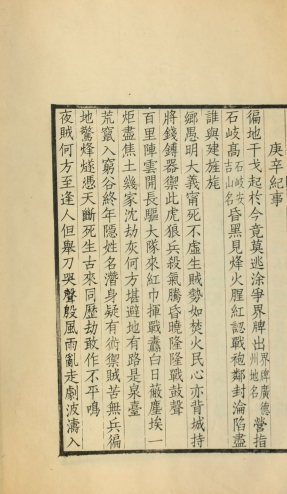 庚辛紀事
徧地干戈起於今竟莫逃涂爭界牌出界牌廣德州地名營指
石岐高石岐安吉山名昏黑見烽火腥紅認戰袍鄰封淪陷盡
誰與建旌旄
鄉愚明大義甯死不虛生賊勢如焚火民心亦背城持
將錢鎛器禦此虎狼兵殺氣騰昏曉隆隆戰鼓聲
百里陣雲開長驅大隊來紅巾揮戰纛白日蔽塵埃一
炬盡焦土幾家沈劫灰何方堪避地有路是泉臺
荒竄入窮谷終年隱姓名潛身疑有術禦賊苦無兵徧
地驚烽燧憑天斷死生古來同歷劫敢作不平鳴
夜賊何方至逢人但舉刀哭聲殷風雨亂走劇波濤入